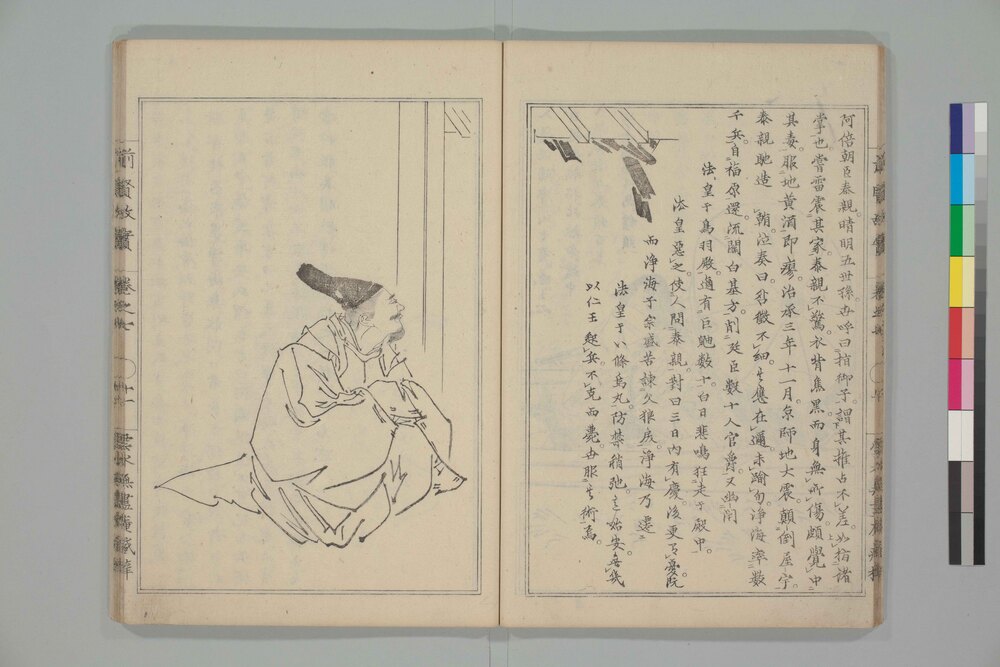 阿倍朝臣泰親。晴明五世孫。世呼曰指御子。謂其推占不差。如指諸
掌也。嘗雷震其家。泰親不驚。衣背焦黑。而身無所傷。頗覺中
其毒。服地黄酒即瘳。治承三年十一月。京師地大震。顛倒屋宇。
泰親馳造 朝。泣奏曰。咎徵不細。其應在邇。未踰旬。淨海率數
千兵。自福原還。流關白基房。削廷臣數十人官爵。又幽閉
法皇于鳥羽殿。適有巨鼬數十。白日悲鳴。狂走于殿中。
法皇惡之。使人問泰親。對曰。三日内有慶。後更有憂。既
而淨海予宗盛苦諫久狼戾。淨海乃遷
法皇于八條烏丸。防禁稍弛。主姑安。無幾
以仁王起兵。不克而薨。世服其術焉。
前賢故實 卷之七 十一 雲水無盡菴藏梓